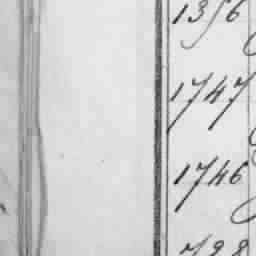 1356
1747
1746